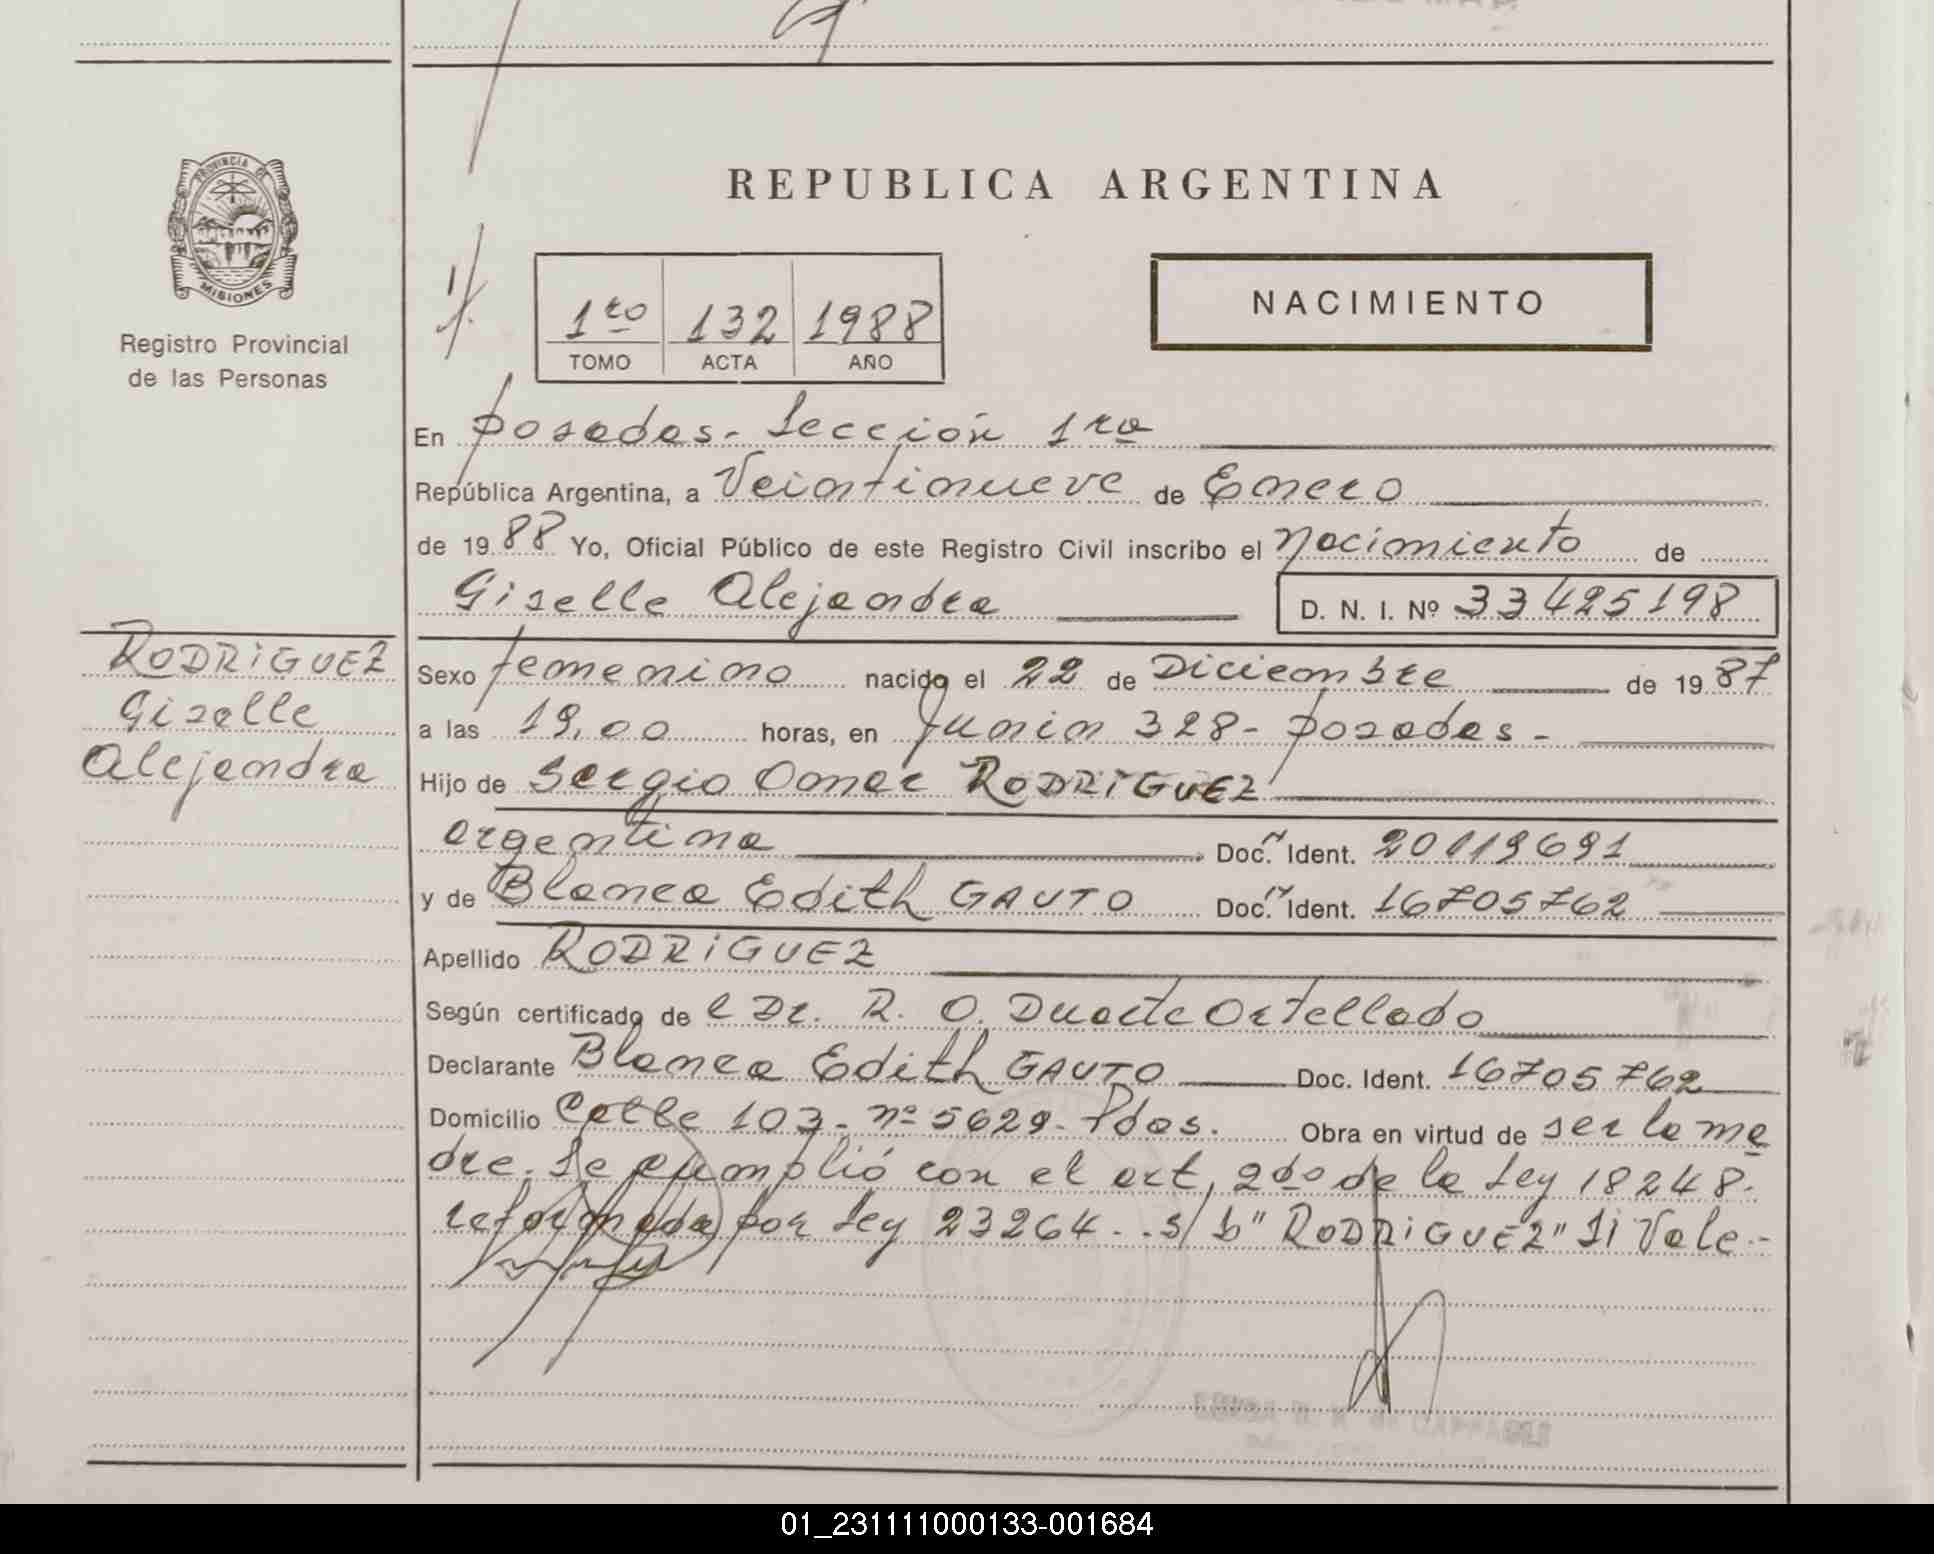 REPUBLICA ARGENTINA
PROVINCIA DE
MISIONES
Registro Provincial
de las Personas
1ro 132 1988
TOMO ACTA AÑO
NACIMIENTO
En Posadas - Sección 1ra
República Argentina, a Veintinueve de Enero
de 1988 Yo, Oficial Público de este Registro Civil inscribo el Nacimiento de
Giselle Alejandra D. N. I. Nº 33425198
RODRIGUEZ
Giselle
Alejandra
Sexo femenino nacido el 22 de Diciembre de 1987
a las 19,00 horas, en Junin 328 - Posadas -
Hijo de Sergio Omar RODRIGUEZ
argentina Doc. Ident. 20119691
y de Blanca Edith GAUTO Doc. Ident. 16705762
Apellido RODRIGUEZ
Según certificado de l Dr. R. O. Duarte Ortellado
Declarante Blanca Edith GAUTO Doc. Ident. 16705762
Domicilio Calle 103 - Nº 5629 - Pdas. Obra en virtud de ser la ma
dre. Se cumplió con el art. 2do de la Ley 18248.
reformada por Ley 23264. . s/ b "RODRIGUEZ" Si Vale.-
01_231111000133-001684